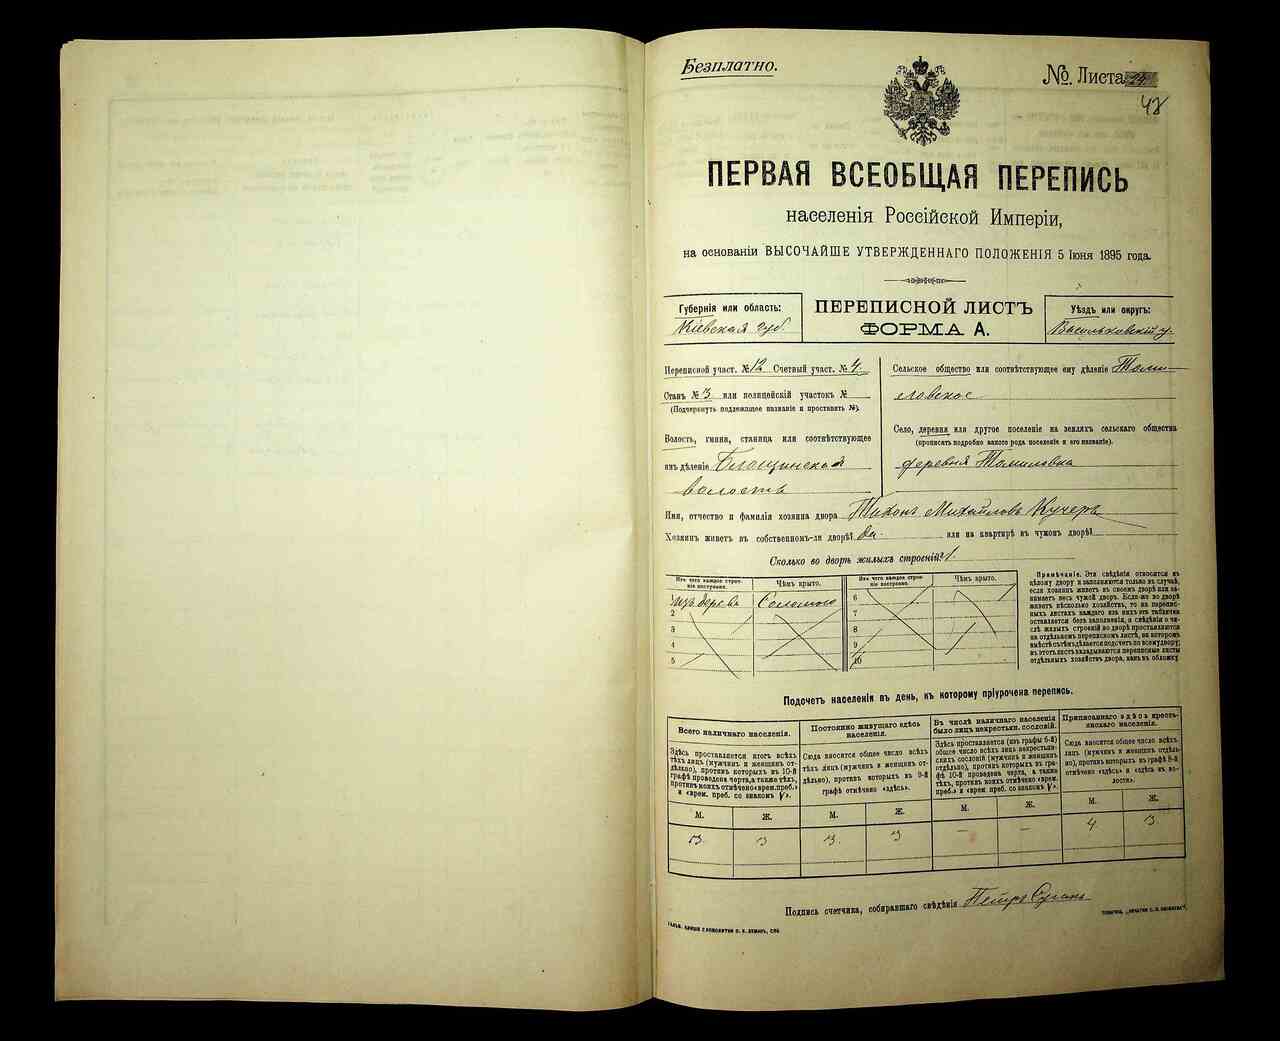 Безплатно.
№. Листа 24
48
ПЕРВАЯ ВСЕОБЩАЯ ПЕРЕПИСЬ
населенія Россійской Имперіи,
на основаніи ВЫСОЧАЙШЕ УТВЕРЖДЕННАГО ПОЛОЖЕНІЯ 5 Іюня 1895 года.
Губернія или область:
Кіевская губ.
ПЕРЕПИСНОЙ ЛИСТЪ
ФОРМА А.
Уѣздъ или округъ:
Васильковскій у.
Переписной участ. № 12 Счетный участ. № 4.
Станъ № 3 или полицейскій участокъ №
(Подчеркнуть подлежащее названіе и проставить №).
Волость, гмина, станица или соотвѣтствующее
имъ дѣленіе Блощинская
волость
Сельское общество или соотвѣтствующее ему дѣленіе Томи-
ловское
Село, деревня или другое поселеніе на земляхъ сельскаго общества
(прописать подробно какого рода поселеніе и его названіе).
деревня Томиловка
Имя, отчество и фамилія хозяина двора Тихонъ Михайловъ Кучеръ
Хозяинъ живетъ въ собственномъ-ли дворѣ? да. или на квартирѣ въ чужомъ дворѣ?
Сколько во дворѣ жилыхъ строеній? 1.
Изъ чего каждое строеніе построено.
Чѣмъ крыто.
Изъ чего каждое строеніе построено.
Чѣмъ крыто.
изъ дерева Соломою
2
3
4
5
6
7
8
9
10
Примѣчаніе. Эти свѣдѣнія относятся къ
цѣлому двору и заполняются только въ случаѣ,
если хозяинъ живетъ въ своемъ дворѣ или за-
нимаетъ весь чужой дворъ. Если-же во дворѣ
живетъ нѣсколько хозяйствъ, то на перепис-
ныхъ листахъ каждаго изъ нихъ эта табличка
оставляется безъ заполненія, а свѣдѣнія о чи-
слѣ жилыхъ строеній во дворѣ проставляются
на отдѣльномъ переписномъ листѣ, на которомъ
вмѣстѣ съ тѣмъ дѣлается подсчетъ по всему двору;
въ этотъ листъ вкладываются переписные листы
отдѣльныхъ хозяйствъ двора, какъ въ обложку
Подсчетъ населенія въ день, къ которому пріурочена перепись.
Всего наличнаго населенія.
Здѣсь проставляется итогъ всѣхъ
тѣхъ лицъ (мужчинъ и женщинъ от-
дѣльно), противъ которыхъ въ 10-й
графѣ проведена черта, а также тѣхъ,
противъ коихъ отмѣчено «врем. преб.»
и «врем. преб. со знакомъ V».
Постоянно живущаго здѣсь
населенія.
Сюда вносится общее число всѣхъ
тѣхъ лицъ (мужчинъ и женщинъ от-
дѣльно), противъ которыхъ въ 9-й
графѣ отмѣчено «здѣсь».
Въ числѣ наличнаго населенія
было лицъ некрестьян. сословій.
Здѣсь проставляется (изъ графы 6-й)
общее число всѣхъ лицъ некрестьян-
скихъ сословій (мужчинъ и женщинъ
отдѣльно), противъ которыхъ въ гра-
фѣ 10-й проведена черта, а также
тѣхъ, противъ коихъ отмѣчено «врем.
преб.» и «врем. преб. со знакомъ V».
Приписаннаго здѣсь кресть-
янскаго населенія.
Сюда вносится общее число всѣхъ
лицъ (мужчинъ и женщинъ отдѣль-
но), противъ которыхъ въ графѣ 8-й
отмѣчено «здѣсь» и «здѣсь въ во-
лости».
М. Ж. М. Ж. М. Ж. М. Ж.
3 3 3 3 — — 4 3
Подпись счетчика, собиравшаго свѣдѣнія Петръ